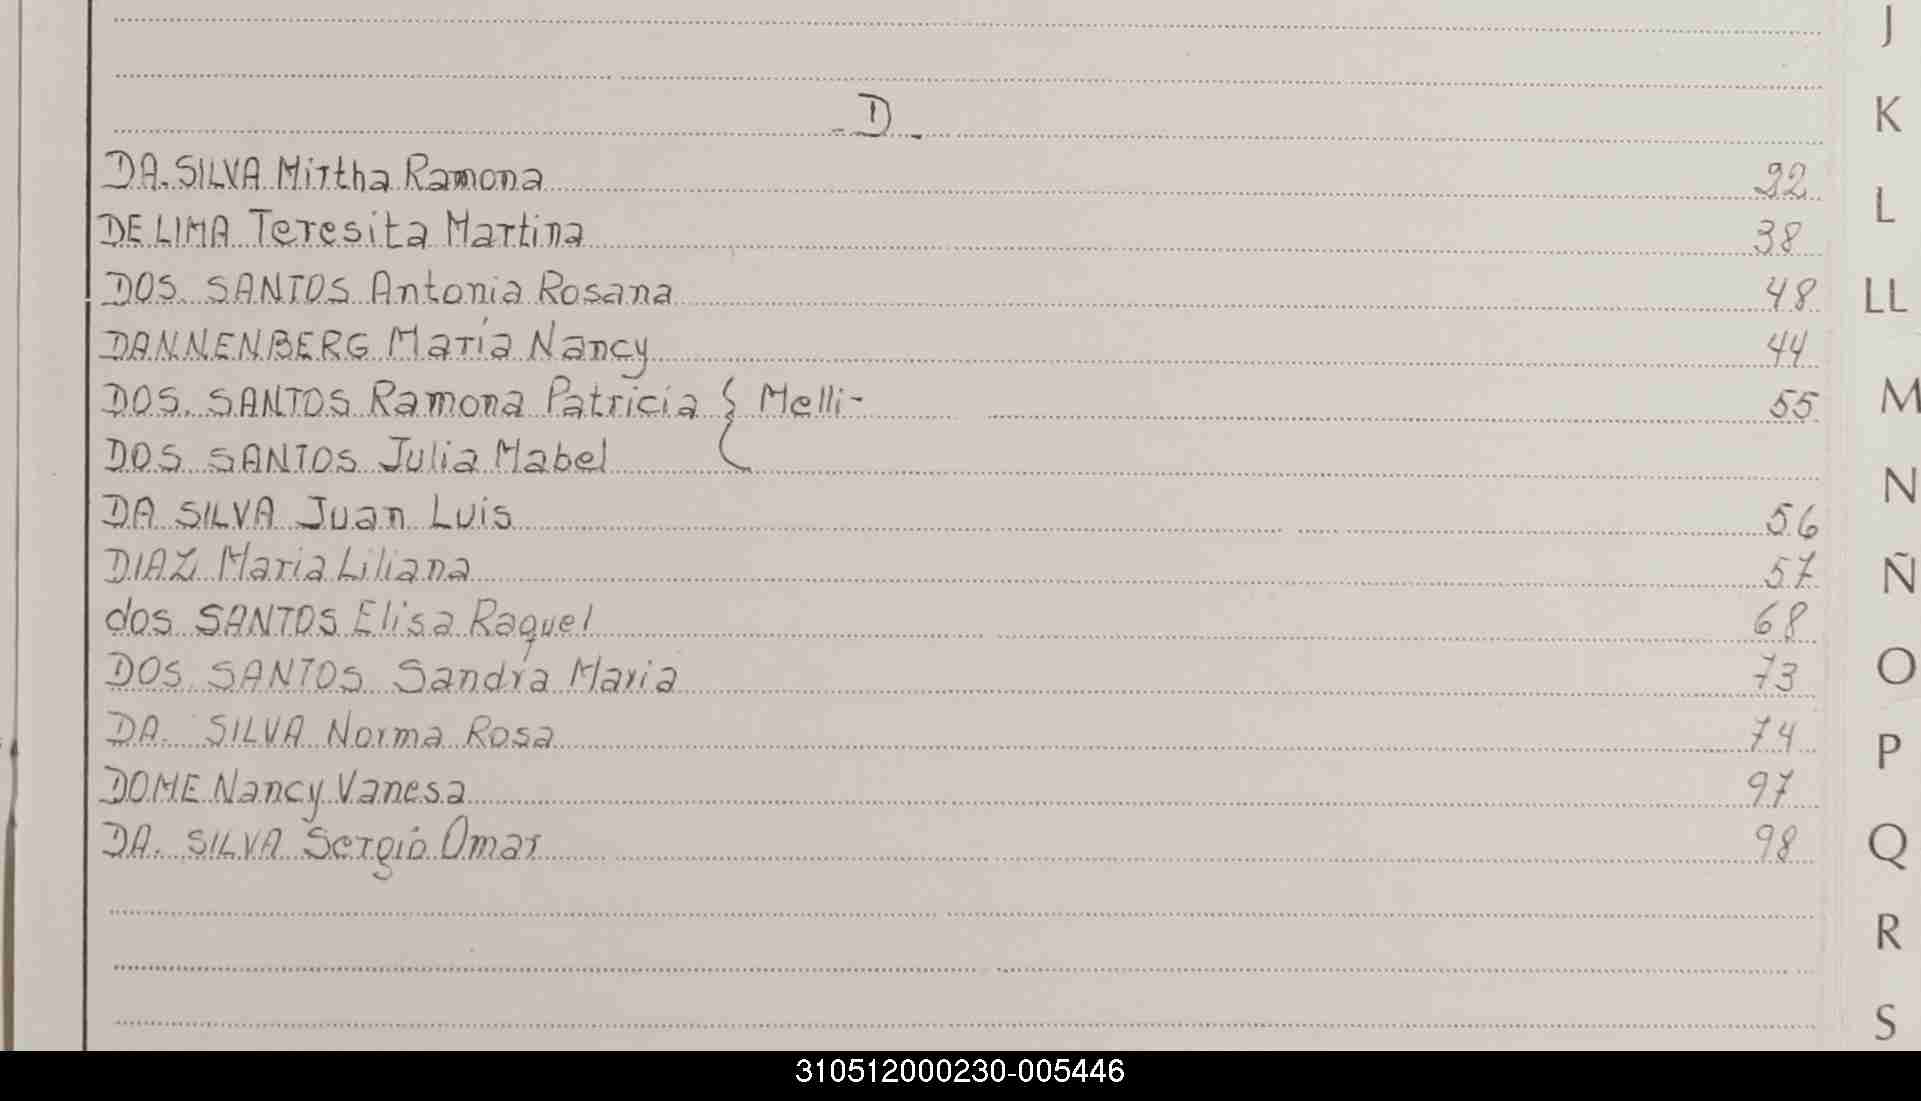 - D -
DA. SILVA Mirtha Ramona 22
DE LIMA Teresita Martina 38
DOS. SANTOS Antonia Rosana 48
DANNENBERG María Nancy 44
DOS. SANTOS Ramona Patricia { Melli- 55
DOS SANTOS Julia Mabel
DA SILVA Juan Luis 56
DIAZ Maria Liliana 57
dos SANTOS Elisa Raquel 68
DOS SANTOS Sandra Maria 73
DA. SILVA Norma Rosa 74
DOME Nancy Vanesa 97
DA. SILVA Sergio Omar 98
J
K
L
LL
M
N
Ñ
O
P
Q
R
S
310512000230-005446